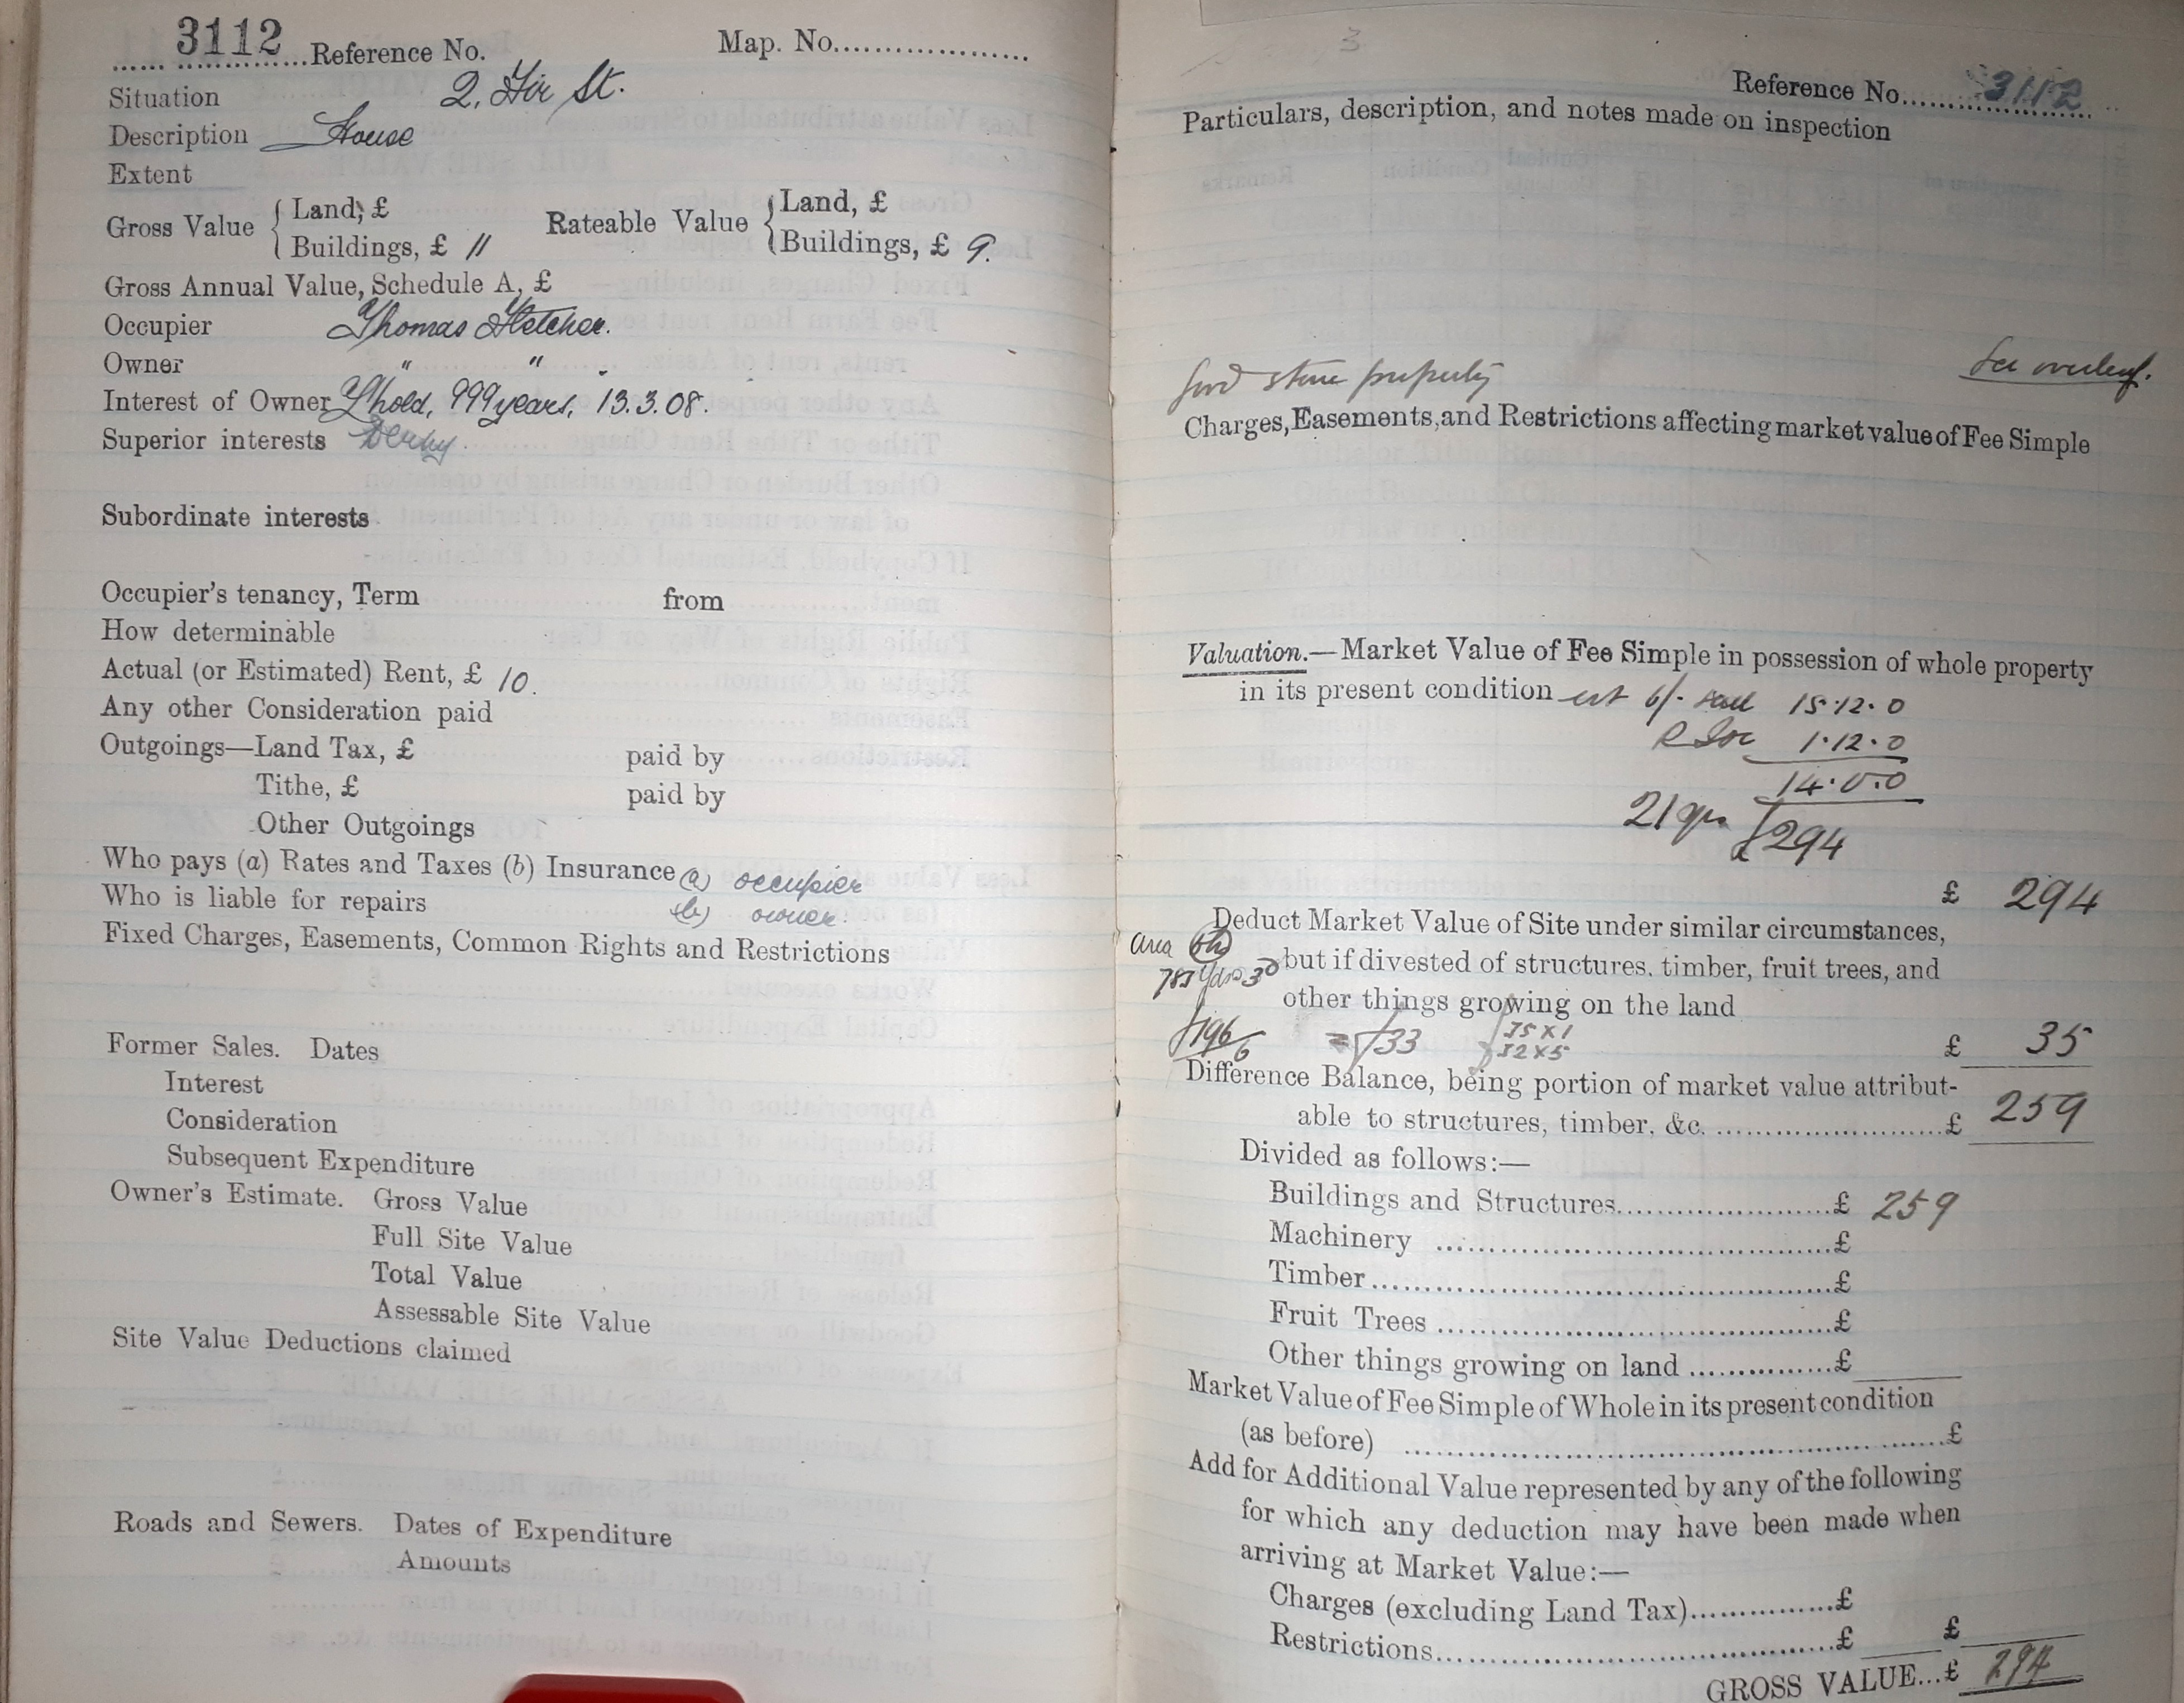 3112 Reference No. Map. No.
Situation 2, Fir St.
Description House
Extent
Gross Value { Land, £ Rateable Value { Land, £
Buildings, £ 11 Buildings, £ 9.
Gross Annual Value, Schedule A, £
Occupier Thomas Fletcher.
Owner " "
Interest of Owner L'hold, 999 years, 13.3.08.
Superior interests Derby
Subordinate interests
Occupier's tenancy, Term from
How determinable
Actual (or Estimated) Rent, £ 10.
Any other Consideration paid
Outgoings—Land Tax, £ paid by
Tithe, £ paid by
Other Outgoings
Who pays (a) Rates and Taxes (b) Insurance (a) occupier
Who is liable for repairs (b) owner.
Fixed Charges, Easements, Common Rights and Restrictions
Former Sales. Dates
Interest
Consideration
Subsequent Expenditure
Owner's Estimate. Gross Value
Full Site Value
Total Value
Assessable Site Value
Site Value Deductions claimed
Roads and Sewers. Dates of Expenditure
Amounts
3
Reference No. 3112
Particulars, description, and notes made on inspection
See overleaf.
Good stone property
Charges, Easements, and Restrictions affecting market value of Fee Simple
Valuation.—Market Value of Fee Simple in possession of whole property
in its present condition est 6/- 15.12.0
1.12.0
14.0.0
21 yrs £294
£ 294
Deduct Market Value of Site under similar circumstances,
area but if divested of structures, timber, fruit trees, and
other things growing on the land
£196/6 = £33 35 x 1
32 x 5 £ 35
Difference Balance, being portion of market value attribut-
able to structures, timber, &c. £ 259
Divided as follows:—
Buildings and Structures £ 259
Machinery £
Timber £
Fruit Trees £
Other things growing on land £
Market Value of Fee Simple of Whole in its present condition
(as before) £
Add for Additional Value represented by any of the following
for which any deduction may have been made when
arriving at Market Value:—
Charges (excluding Land Tax) £
Restrictions £ £
GROSS VALUE...£ 294